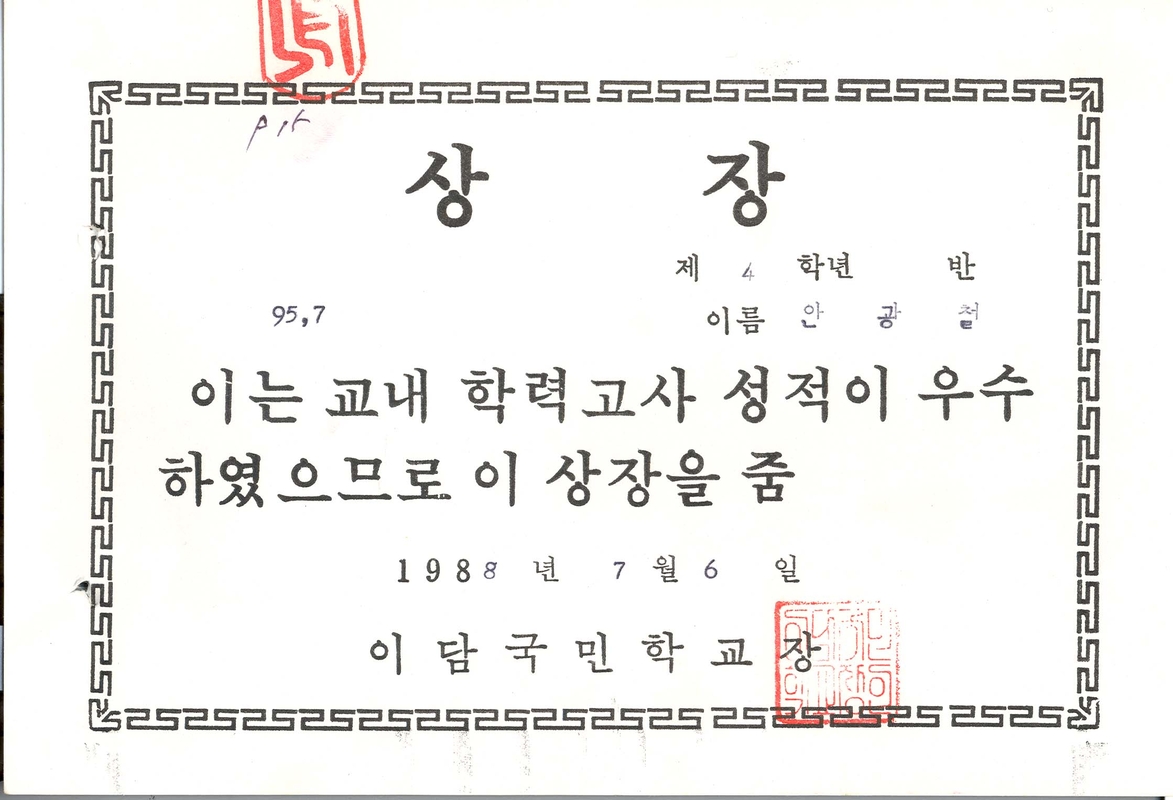 상 장
제 4 학년 반
95,7
이름 안 광 철
이는 교내 학력고사 성적이 우수
하였으므로 이 상장을 줌
1988 년 7 월 6 일
이 담 국 민 학 교 장